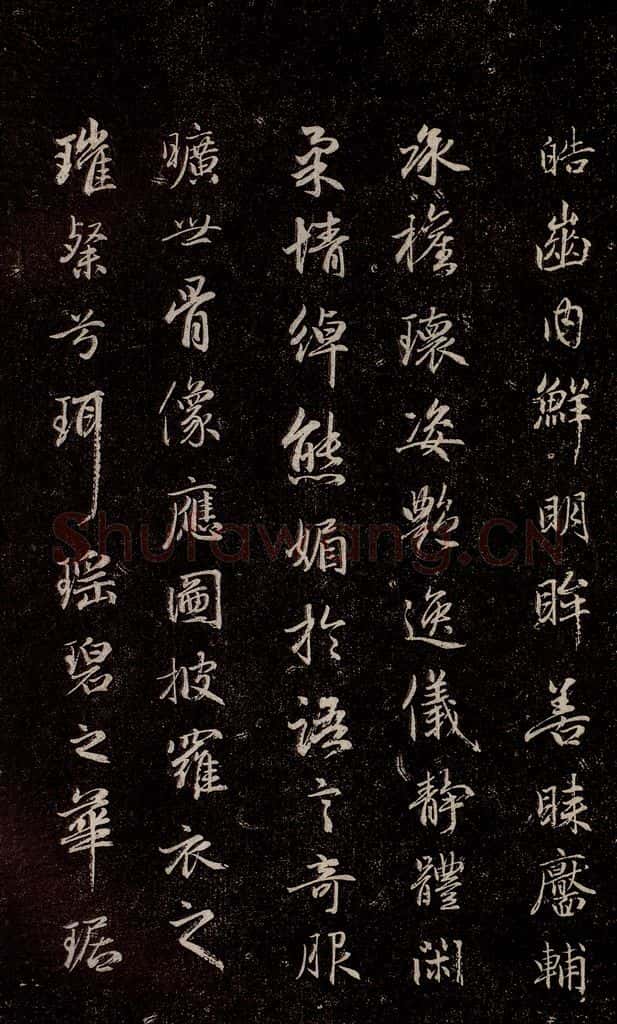 皓齒内鮮明眸善睞靨輔
承權瓌姿艷逸儀靜體閑
柔情綽態媚於語言奇服
曠世骨像應圖披羅衣之
璀粲兮珥瑶碧之華琚
Shufawang.CN